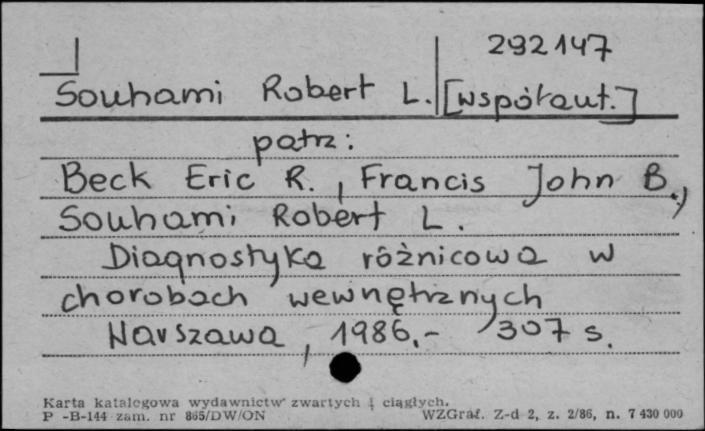 292147
Souhami Robert L. [współaut.]
patrz:
Beck Eric R., Francis John B.,
Souhami Robert L.
Diagnostyka różnicowa w
chorobach wewnętrznych
Warszawa, 1986.- 307 s.
Karta katalogowa wydawnictw zwartych i ciągłych.
P-B-144 zam. nr 865/DW/ON WZGraf. Z-d 2, z. 2/86, n. 7 430 000